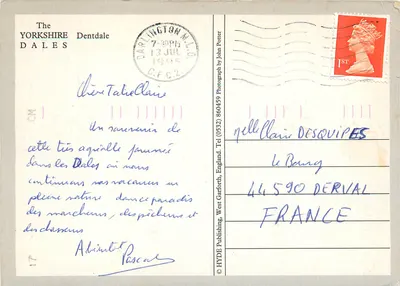 The
YORKSHIRE Dentdale
DALES
DARLINGTON M.L.O.
7-30PM
13 JUL
1ST
Chère Tatie Claire
Un souvenir de
cette très agréable journée
dans les Dales où nous
continuons nos vacances en
pleine nature dans ce paradis
des marcheurs, des pêcheurs et
des chasseurs
A bientôt
Pascal
© HYDE Publishing, West Garforth, England. Tel (0532) 860459 Photograph by John Potter
Melle Claire DESQUIPES
Le Bourg
44590 DERVAL
FRANCE